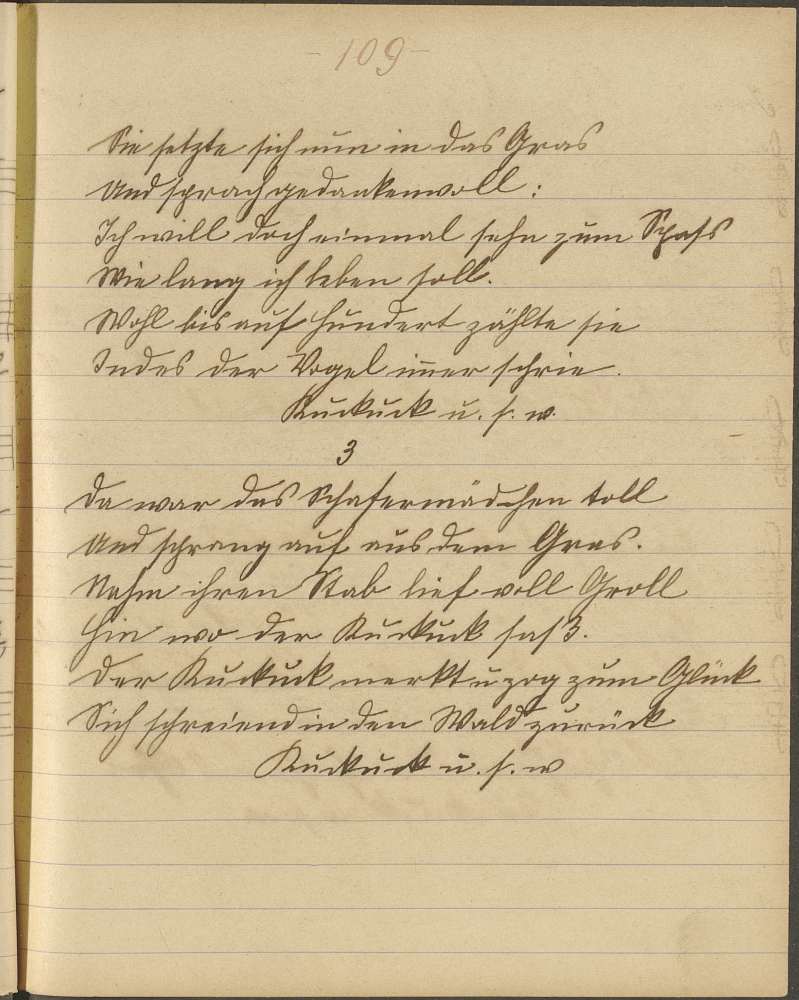 - 109 -
Sie setzte sich nun in das Gras
Und sprach gedankenvoll:
Ich will doch einmal sehn zum Spass
Wie lang ich leben soll.
Wohl bis auf hundert zählte sie
Indes der Vogel im̄er schrie.
Kuckuck u. s. w.
3
Da war das Schafermädchen toll
Und sprang auf aus dem Gras.
Nahm ihren Stab lief voll Groll
Hin wo der Kuckuck saß.
Der Kuckuck merkt u zog zum Glück
Sich schreiend in den Wald zurück
Kuckuck u. s. w